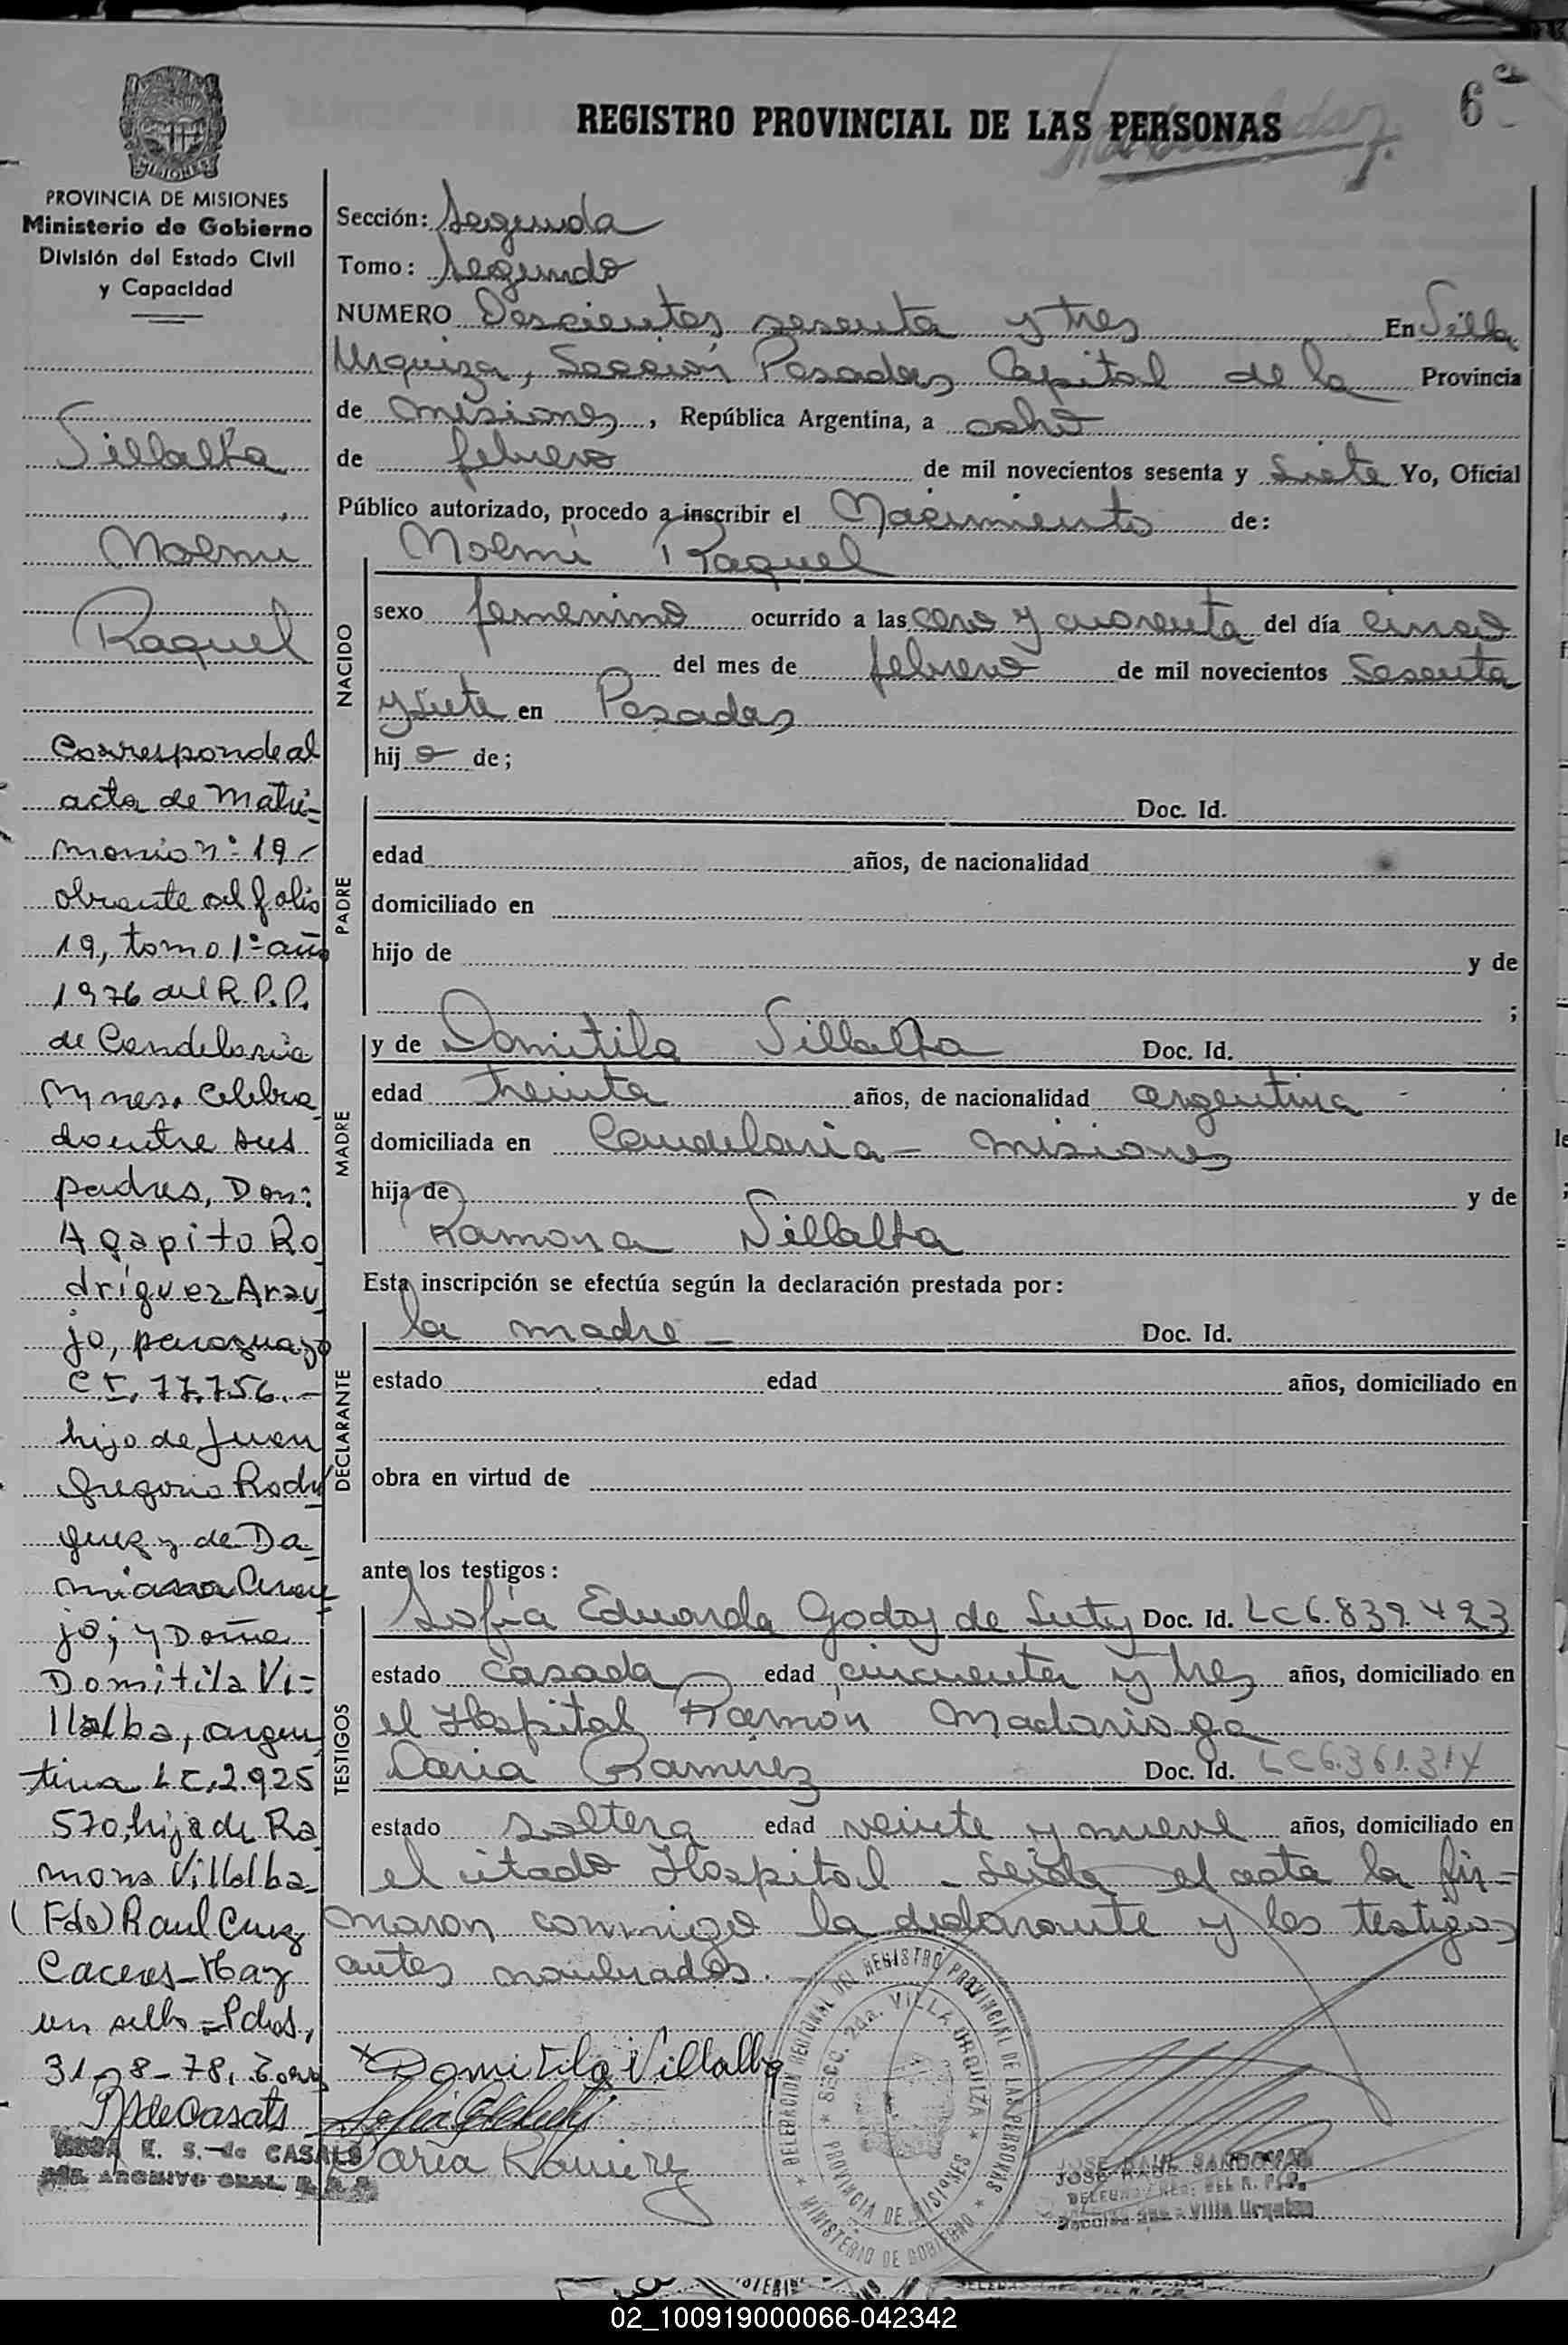 REGISTRO PROVINCIAL DE LAS PERSONAS
6
MISIONES
PROVINCIA DE MISIONES
Ministerio de Gobierno
División del Estado Civil
y Capacidad
Villalba
Noemi
Raquel
Corresponde al
acta de Matri-
monio nº 19-
obrante al folio
19, tomo 1º año
1976 del R.P.P.
de Candelaria
Mnes. Celebra
do entre sus
padres, Don:
Agapito Ro
dríguez Arau
jo, paraguayo
C I. 77.756.-
hijo de Juan
Gregorio Rodrí
guez y de Da-
miana Arau
jo; y Doña
Domitila Vi=
llalba, argen
tina L C. 2.925
570, hija de Ra
mona Villalba-
(Fdo) Raul Cruz
Caceres - Hay
un sello = Pdas,
31-8-78.
E. S. de CASALS
ARCHIVO GRAL. R.P.P.
Sección: Segunda
Tomo: Segundo
NUMERO Doscientos sesenta y tres En Villa
Urquiza, Sección Posadas Capital de la Provincia
de Misiones, República Argentina, a ocho
de febrero de mil novecientos sesenta y siete Yo, Oficial
Público autorizado, procedo a inscribir el Nacimiento de:
NACIDO
Noemi Raquel
sexo femenino ocurrido a las cero y cuarenta del día cinco
del mes de febrero de mil novecientos sesenta
y siete en Posadas
hij a de;
PADRE
Doc. Id.
edad años, de nacionalidad
domiciliado en
hijo de y de
;
MADRE
y de Domitila Villalba Doc. Id.
edad treinta años, de nacionalidad argentina
domiciliada en Candelaria - Misiones
hija de y de
Ramona Villalba
Esta inscripción se efectúa según la declaración prestada por:
DECLARANTE
la madre - Doc. Id.
estado edad años, domiciliado en
obra en virtud de
ante los testigos:
TESTIGOS
Sofía Eduarda Godoy de Doc. Id. LC 6.839.423
estado casada edad cincuenta y tres años, domiciliado en
el Hospital Ramón Madariaga
Daria Ramirez Doc. Id. LC 6.361.314
estado soltera edad veinte y nueve años, domiciliado en
el citado Hospital - Leida el acta la fir-
maron conmigo la declarante y los testigos
antes nombrados.
x Domitila Villalba
Daria Ramirez
DELEGACION REGIONAL DEL REGISTRO PROVINCIAL DE LAS PERSONAS
MINISTERIO DE GOBIERNO
SECC. 2da. VILLA URQUIZA
PROVINCIA DE MISIONES
JOSE RAUL SANDOVAL
DEL R. P. P.
Sección 2da - Villa Urquiza
02_100919000066-042342